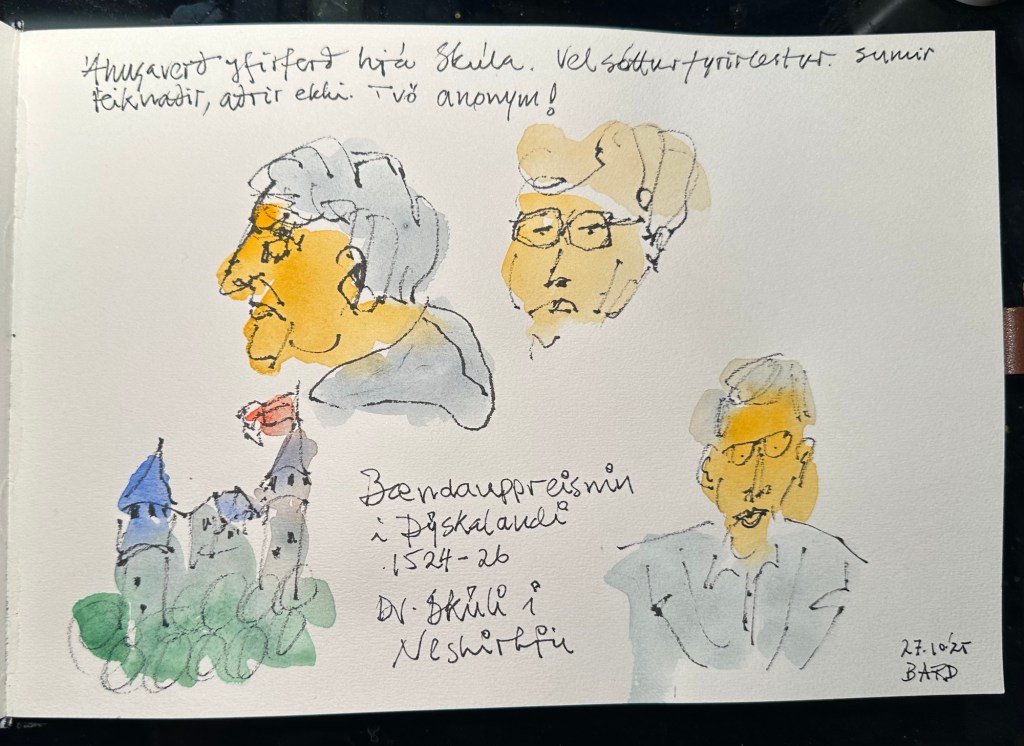 Áhugaverð yfirferð hjá Skúla. Vel sóttur fyrirlestur. Sumir
teiknaðir, aðrir ekki. Tvö anonym!
Bændauppreisnin
í Þýskalandi
1524-26
Dr. Skúli í
Neskirkju
27.10'25
BARD